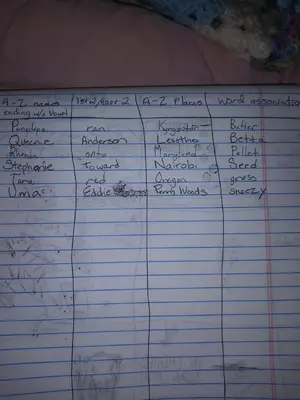 A-Z names 1st 2/Last 2 A-Z Places Word association
ending w/a Vowel
ran Kyrgyzstan Butter
Queenie Anderson Lesotho Betta
Rhonda onto Maryland Pellet
Stephanie Toward Nairobi Seed
red Oregon grass
Uma Eddie Penns Woods sneezy